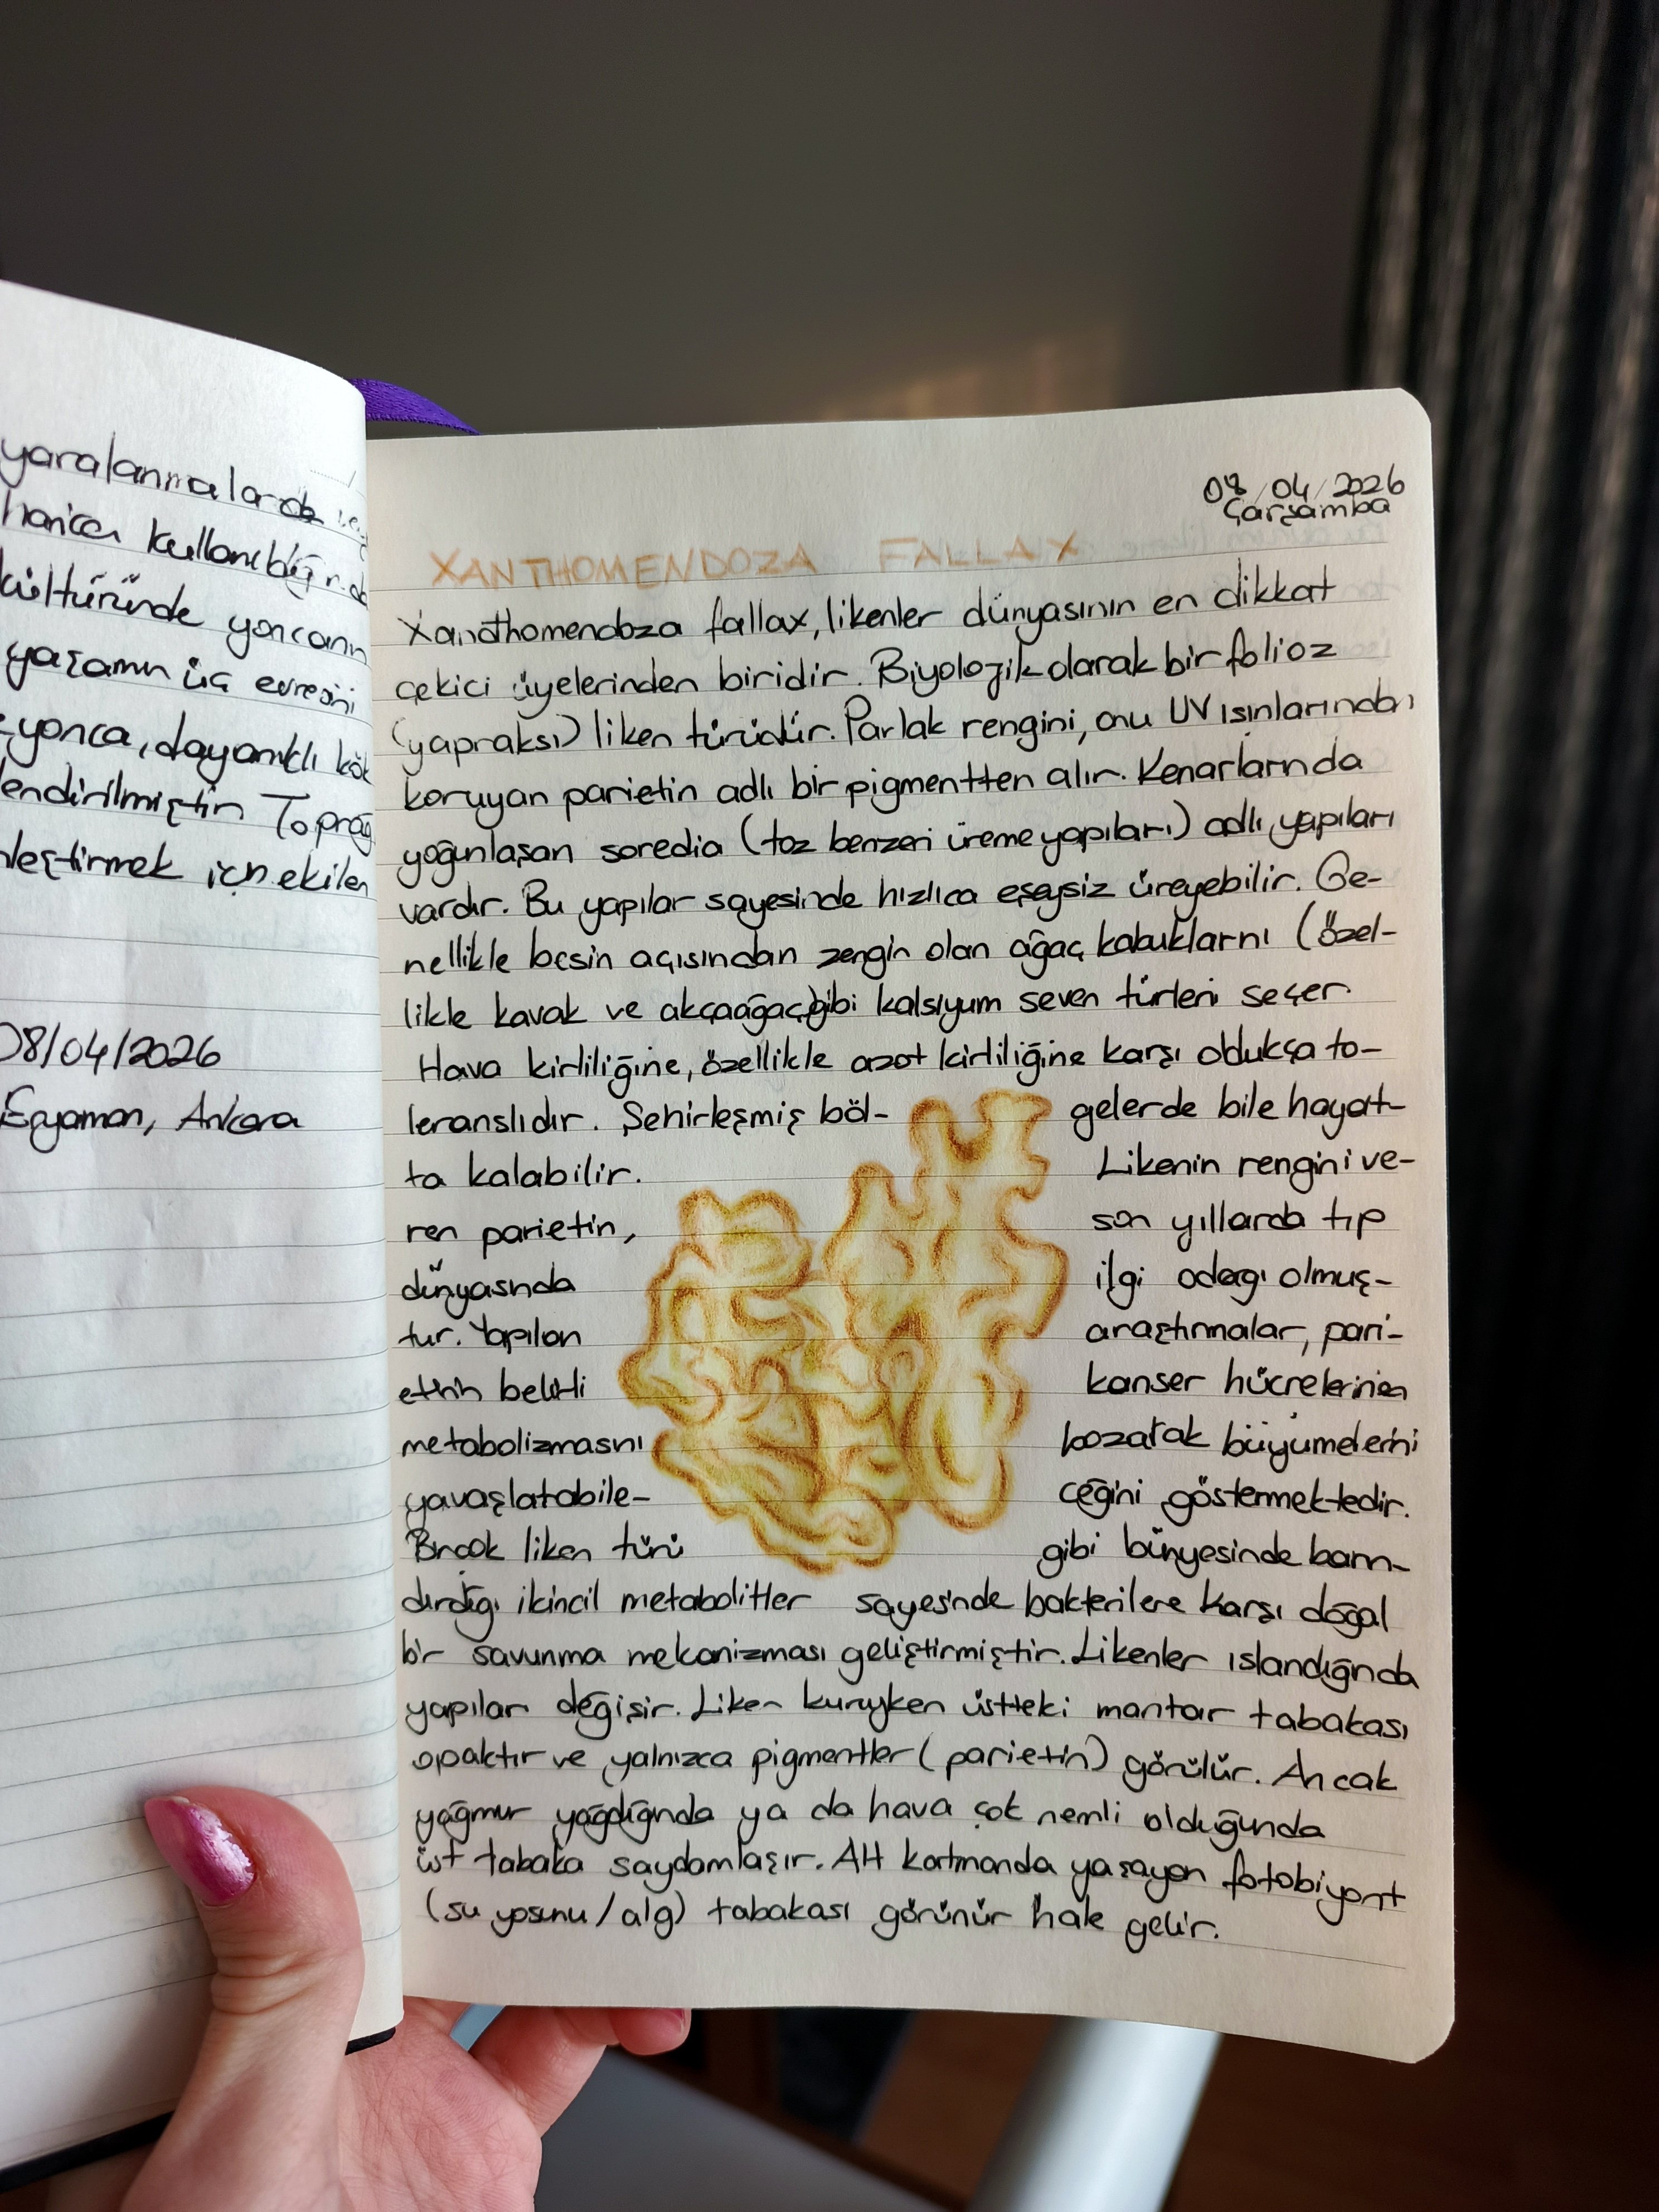 yaralanmalarda
harica kullanıldığında
kültüründe yoncanın
yaşamın üç evresini
yonca, dayanıklı kök
lendirilmiştir. Toprağ
leştirmek için ekilen
08/04/2026
Eryaman, Ankara
08/04/2026
Çarşamba
XANTHOMENDOZA FALLAX
Xanothomendoza fallax, likenler dünyasının en dikkat
çekici üyelerinden biridir. Biyolojik olarak bir folioz
(yapraksı) liken türüdür. Parlak rengini, onu UV ışınlarından
koruyan parietin adlı bir pigmentten alır. Kenarlarında
yoğunlaşan soredia (toz benzeri üreme yapıları) adlı yapıları
vardır. Bu yapılar sayesinde hızlıca eşeysiz üreyebilir. Ge-
nellikle besin açısından zengin olan ağaç kabuklarını (özel-
likle kavak ve akçaağaç) gibi kalsiyum seven türleri seçer.
Hava kirliliğine, özellikle azot kirliliğine karşı oldukça to-
leranslıdır. Şehirleşmiş böl- gelerde bile hayat-
ta kalabilir. Likenin rengini ve-
ren parietin, son yıllarda tıp
dünyasında ilgi odağı olmuş-
tur. Yapılan araştırmalar, pari-
etinin belirli kanser hücrelerinin
metabolizmasını bozarak büyümelerini
yavaşlatabile- ceğini göstermektedir.
Birçok liken türü gibi bünyesinde barın-
dırdığı ikincil metabolitler sayesinde bakterilere karşı doğal
bir savunma mekanizması geliştirmiştir. Likenler ıslandığında
yapıları değişir. Liken kuruyken üstteki mantar tabakası
opaktır ve yalnızca pigmentler (parietin) görülür. Ancak
yağmur yağdığında ya da hava çok nemli olduğunda
üst tabaka saydamlaşır. Alt katmanda yaşayan fotobiyont
(su yosunu/alg) tabakası görünür hale gelir.